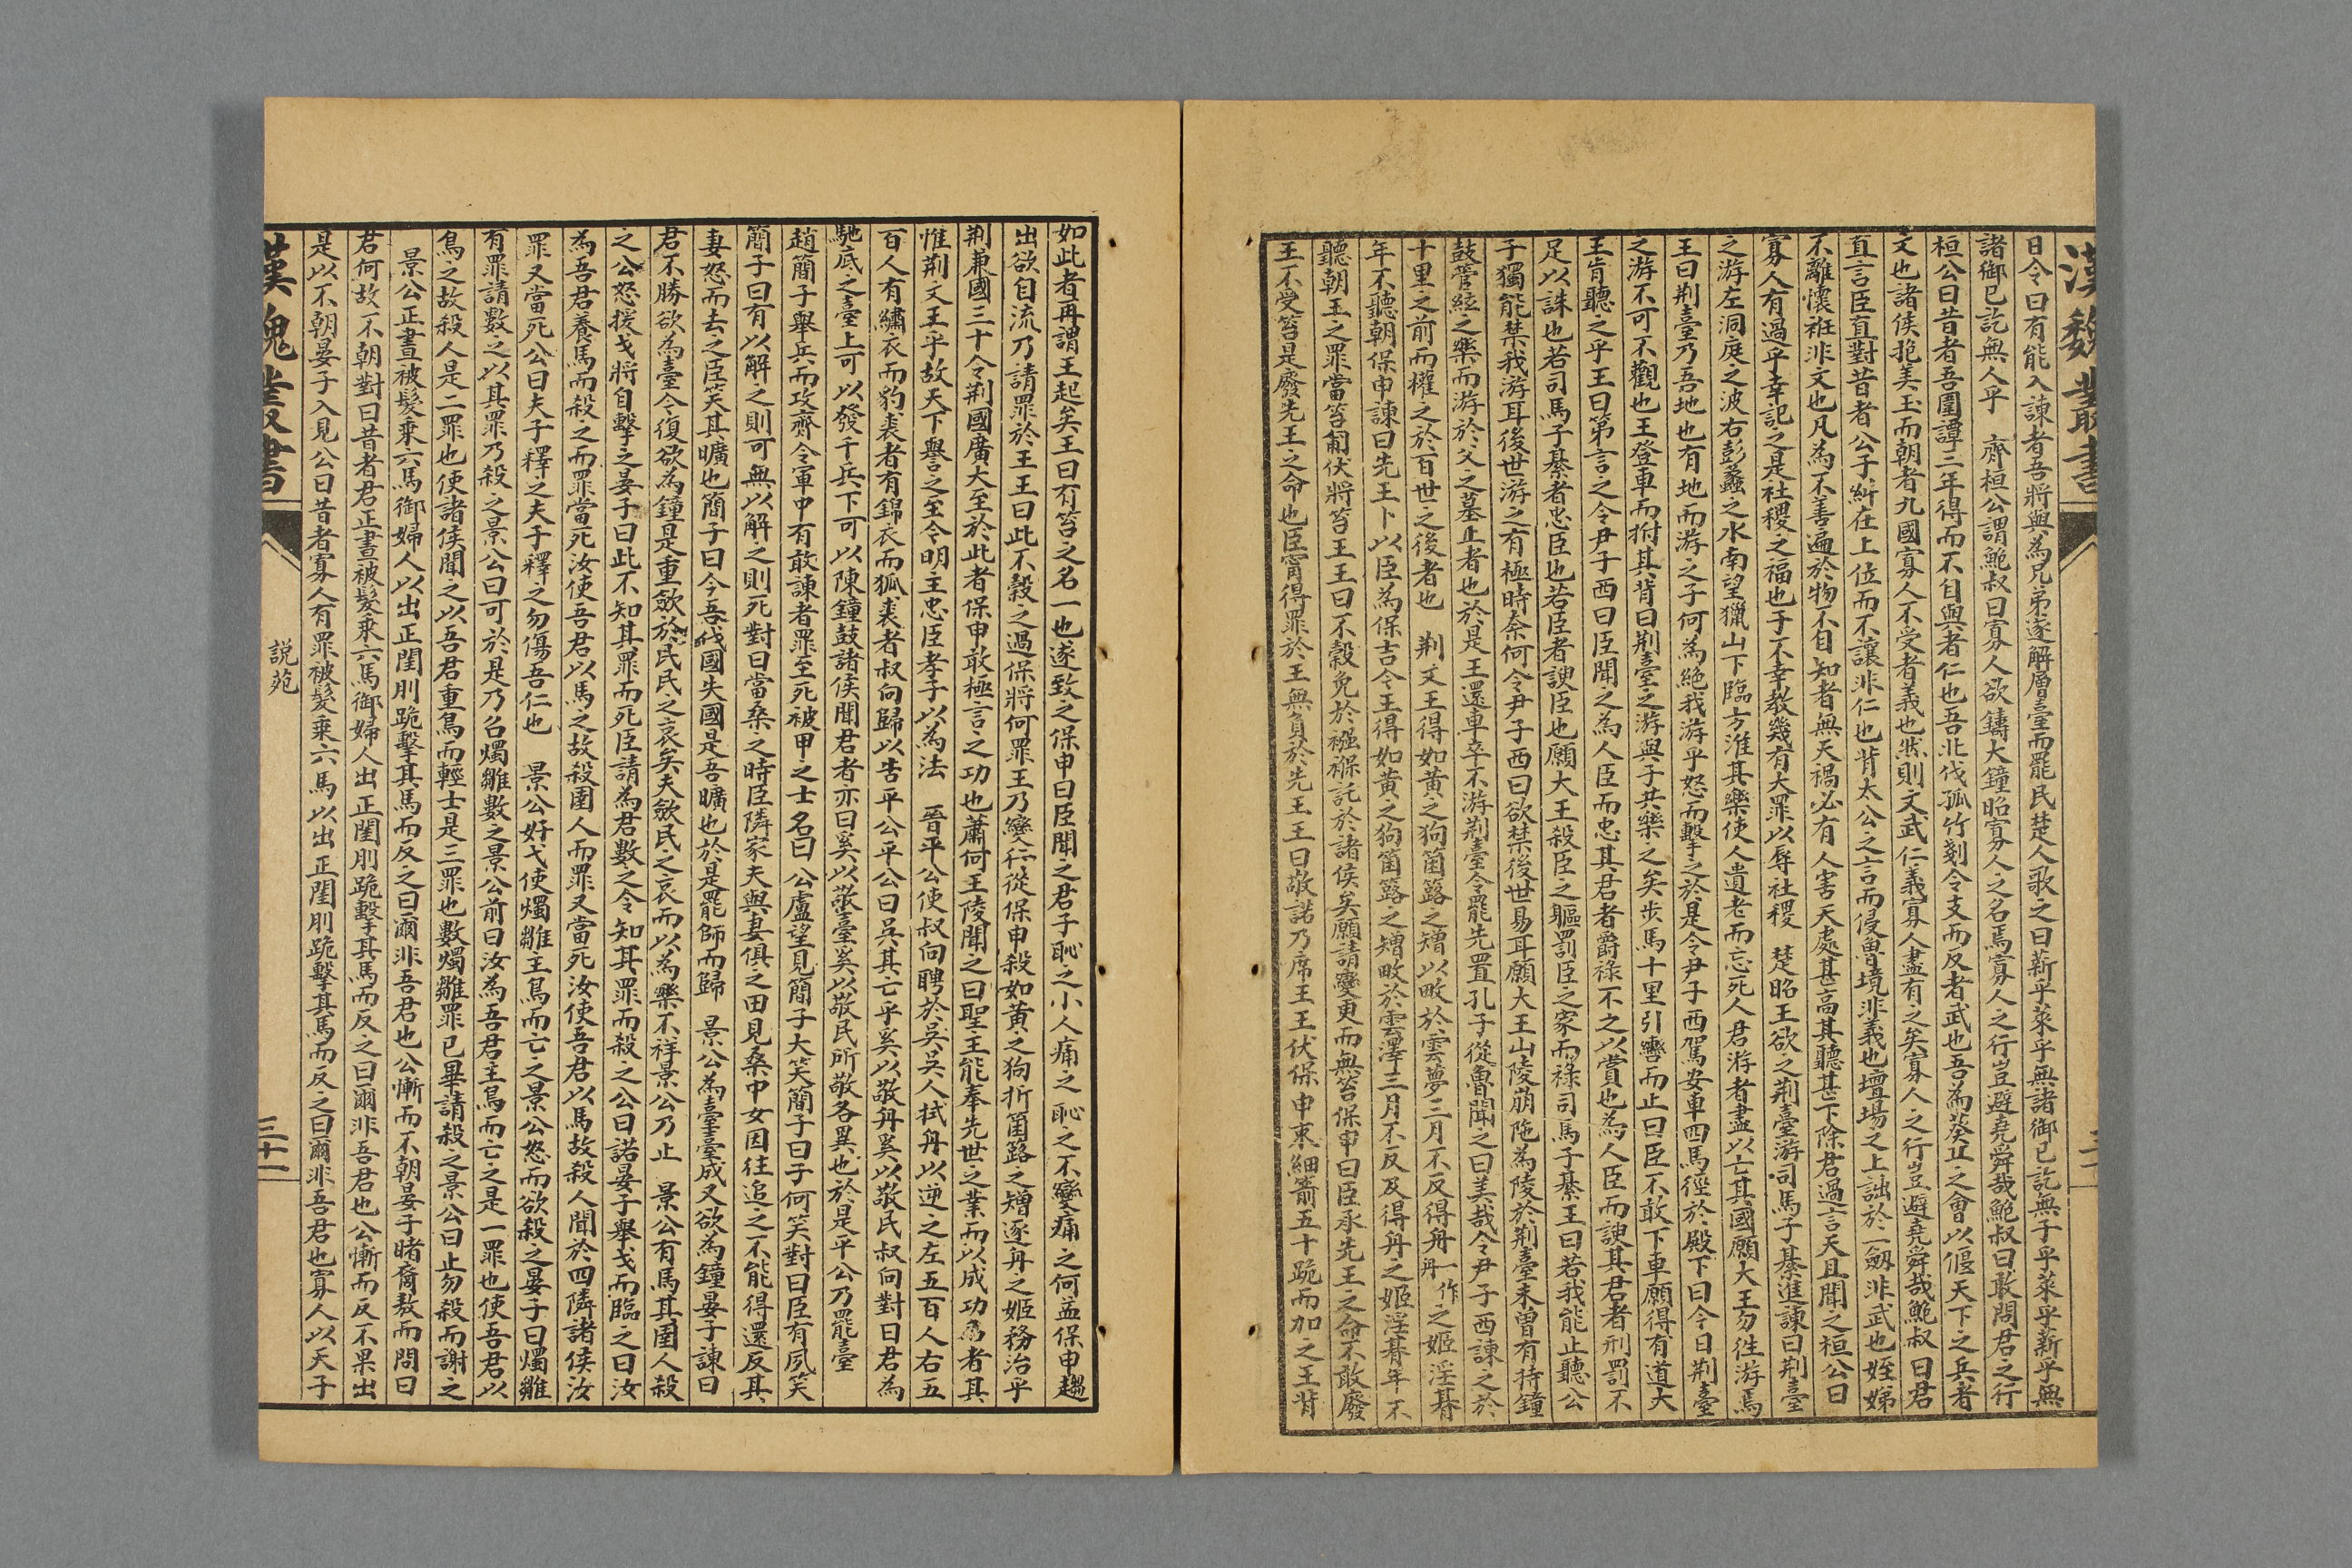 漢魏叢書
日令曰有能入諫者吾將與為兄弟遂解層臺而罷民楚人歌之曰薪乎萊乎無諸御已訖無子乎萊乎薪乎無
諸御已訖無人乎　齊桓公謂鮑叔曰寡人欲鑄大鐘昭寡人之名焉寡人之行豈避堯舜哉鮑叔曰敢問君之行
桓公曰昔者吾圍譚三年得而不自與者仁也吾北伐孤竹剗令支而反者武也吾為葵丘之會以偃天下之兵者
文也諸侯抱美玉而朝者九國寡人不受者義也然則文武仁義寡人盡有之矣寡人之行豈避堯舜哉鮑叔曰君
直言臣直對昔者公子糾在上位而不讓非仁也背太公之言而侵魯境非義也壇場之上詘於一劒非武也姪娣
不離懷袵非文也凡為不善遍於物不自知者無天禍必有人害天處甚高其聽甚下除君過言天且聞之桓公曰
寡人有過乎幸記之是社稷之福也子不幸教幾有大罪以辱社稷　楚昭王欲之荆臺游司馬子綦進諫曰荆臺
之游左洞庭之波右彭蠡之水南望獵山下臨方淮其樂使人遺老而忘死人君游者盡以亡其國願大王勿往游焉
王曰荆臺乃吾地也有地而游之子何為絶我游乎怒而擊之於是令尹子西駕安車四馬徑於殿下曰今日荆臺
之游不可不觀也王登車而拊其背曰荆臺之游與子共樂之矣步馬十里引轡而止曰臣不敢下車願得有道大
王肯聽之乎王曰第言之令尹子西曰臣聞之為人臣而忠其君者爵祿不之以賞也為人臣而諛其君者刑罰不
足以誅也若司馬子綦者忠臣也若臣者諛臣也願大王殺臣之軀罰臣之家而祿司馬子綦王曰若我能止聽公
子獨能禁我游耳後世游之有極時奈何令尹子西曰欲禁後世易耳願大王山陵崩陁為陵於荆臺未曾有持鐘
鼓管絃之樂而游於父之墓上者也於是王還車卒不游荆臺令罷先置孔子從魯聞之曰美哉令尹子西諫之於
十里之前而權之於百世之後者也　荆文王得如黄之狗箘簬之矰以畋於雲夢三月不反得舟一作丹之姬淫朞
年不聽朝保申諫曰先王卜以臣為保吉今王得如黄之狗箘簬之矰畋於雲澤三月不反及得舟之姬淫朞年不
聽朝王之罪當笞匍伏將笞王王曰不穀免於襁褓託於諸侯矣願請變更而無笞保申曰臣承先王之命不敢廢
王不受笞是廢先王之命也臣寧得罪於王無負於先王王曰敬諾乃席王王伏保申束細箭五十跪而加之王背
如此者再謂王起矣王曰有笞之名一也遂致之保申曰臣聞之君子恥之小人痛之恥之不變痛之何益保申趨
出欲自流乃請罪於王王曰此不穀之過保將何罪王乃變行從保申殺如黄之狗折箘簬之矰逐舟之姬務治乎
荆兼國三十令荆國廣大至於此者保申敢極言之功也蕭何王陵聞之曰聖主能奉先世之業而以成功名者其
惟荆文王乎故天下譽之至今明主忠臣孝子以為法　晉平公使叔向聘於吳吳人拭舟以逆之左五百人右五
百人有繡衣而豹裘者有錦衣而狐裘者叔向歸以告平公平公曰吳其亡乎奚以敬舟奚以敬民叔向對曰君為
馳底之臺上可以發千兵下可以陳鐘鼓諸侯聞君者亦曰奚以敬臺奚以敬民所敬各異也於是平公乃罷臺
趙簡子舉兵而攻齊令軍中有敢諫者罪至死被甲之士名曰公盧望見簡子大笑簡子曰子何笑對曰臣有夙笑
簡子曰有以解之則可無以解之則死對曰當桑之時臣隣家夫與妻俱之田見桑中女因往追之不能得還反其
妻怒而去之臣笑其曠也簡子曰今吾伐國失國是吾曠也於是罷師而歸　景公為臺臺成又欲為鐘晏子諫曰
君不勝欲為臺今復欲為鐘是重斂於民民之哀矣夫斂民之哀而以為樂不祥景公乃止　景公有馬其圉人殺
之公怒援戈將自擊之晏子曰此不知其罪而死臣請為君數之令知其罪而殺之公曰諾晏子舉戈而臨之曰汝
為吾君養馬而殺之而罪當死汝使吾君以馬之故殺圉人而罪又當死汝使吾君以馬故殺人聞於四隣諸侯汝
罪又當死公曰夫子釋之夫子釋之勿傷吾仁也　景公好弋使燭雛主鳥而亡之景公怒而欲殺之晏子曰燭雛
有罪請數之以其罪乃殺之景公曰可於是乃召燭雛數之景公前曰汝為吾君主鳥而亡之是一罪也使吾君以
鳥之故殺人是二罪也使諸侯聞之以吾君重鳥而輕士是三罪也數燭雛罪已畢請殺之景公曰止勿殺而謝之
景公正晝被髮乘六馬御婦人以出正閨刖跪擊其馬而反之曰爾非吾君也公慚而不朝晏子睹裔敖而問曰
君何故不朝對曰昔者君正晝被髮乘六馬御婦人出正閨刖跪擊其馬而反之曰爾非吾君也公慚而反不果出
是以不朝晏子入見公曰昔者寡人有罪被髮乘六馬以出正閨刖跪擊其馬而反之曰爾非吾君也寡人以天子
漢魏叢書
説苑
三十一